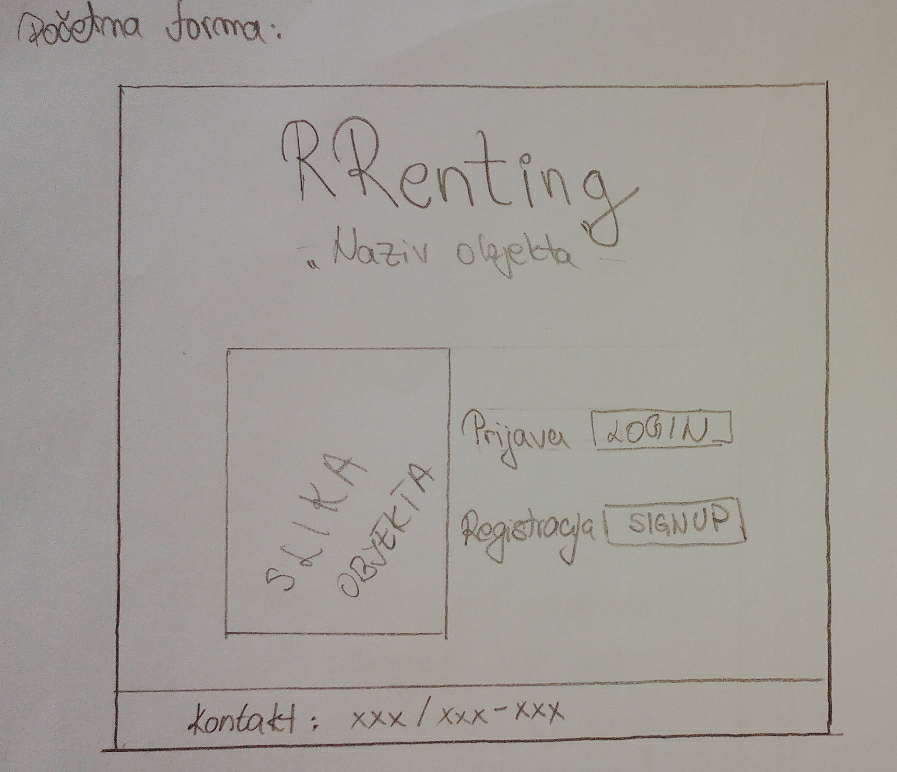 Početna forma:
RRenting
„Naziv objekta"
SLIKA
OBJEKTA
Prijava LOGIN
Registracija SIGNUP
kontakt: xxx/xxx-xxx